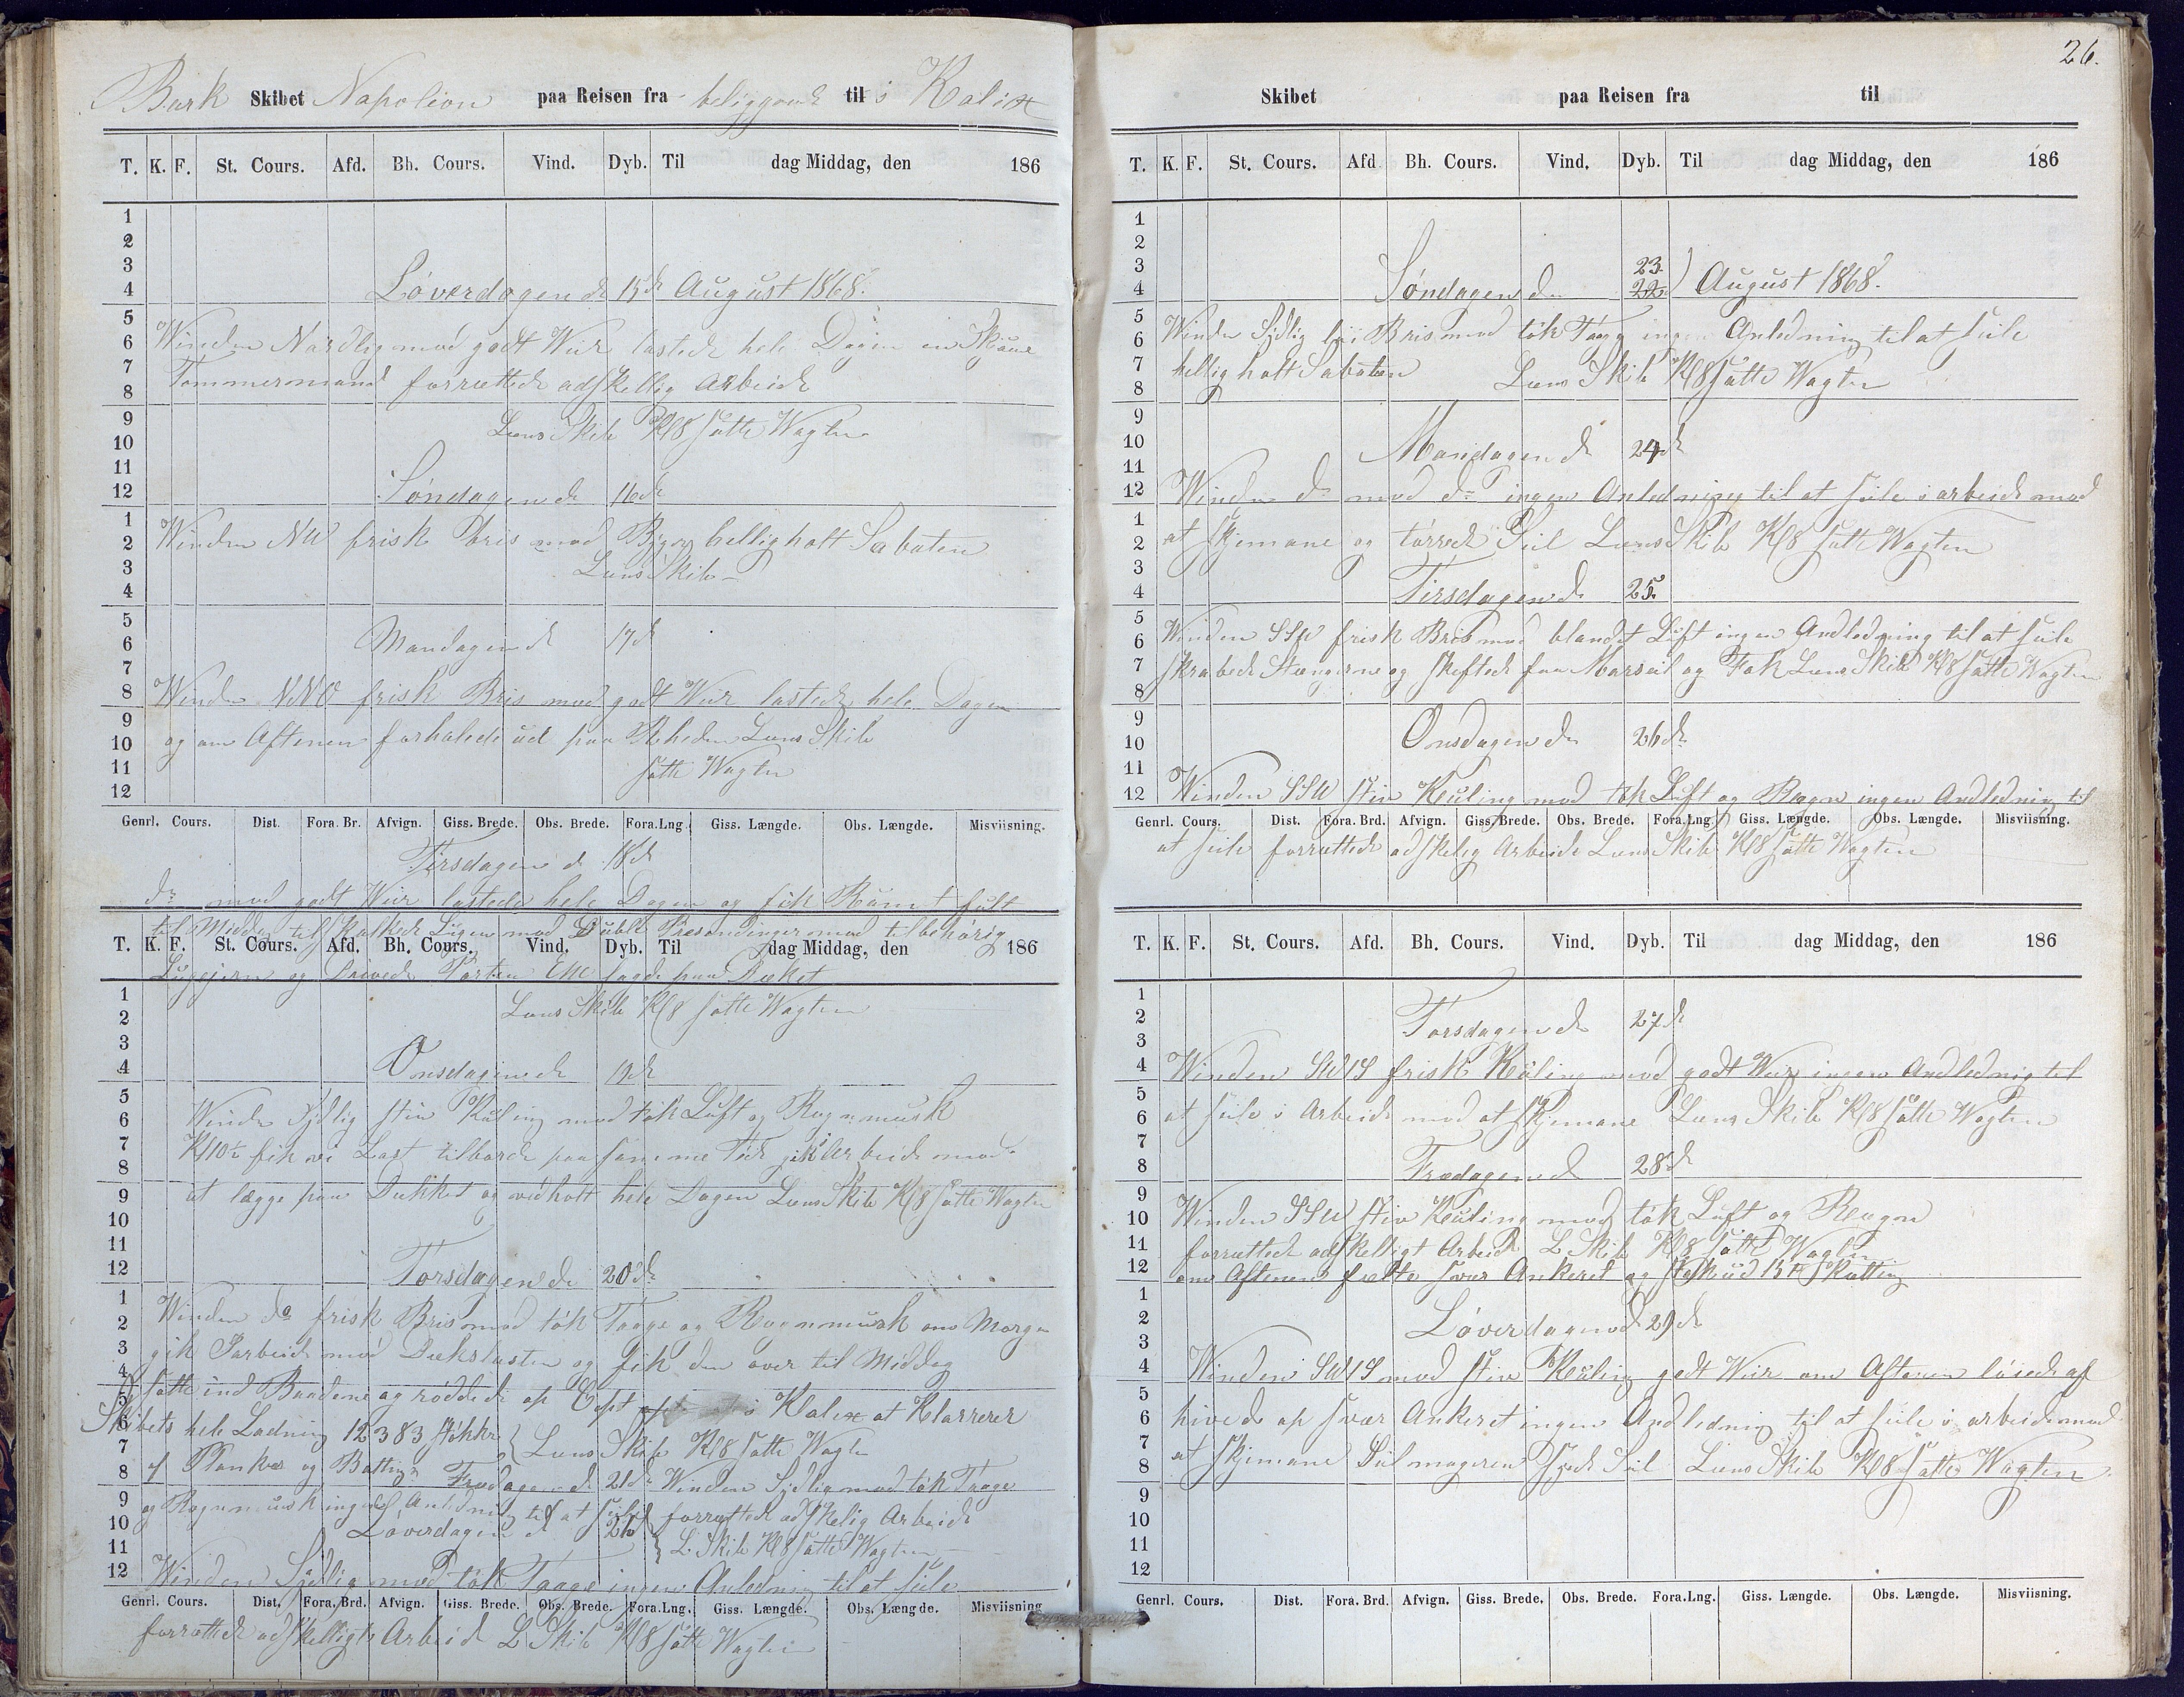 Bark Skibet Napoleon paa Reisen fra beliggende til i Kalix
T. K. F. St. Cours. Afd. Bh. Cours. Vind. Dyb. Til dag Middag, den 186
1
2
3
4
Løverdagen d 15de August 1868.
5
6
7
8
Winden Nordlig med godt Weir lastede hele Dagen en Mand
Tømmermand forrettede adskellig Arbeide
9
10
11
12
Lens Skib Kl 8 satte Wagten
Søndagen d 16de
1
2
3
4
Winden NW frisk bris med Byger helligholt Sabaten
Lens Skib
5
6
7
8
Mandagen d 17d
Winden NNO frisk Bris med godt Weir lastede hele Dagen
9
10
11
12
og om Aftenen forhalede ud paa Rheden Lens Skib
satte Wagten
Genrl. Cours. Dist. Fora. Br. Afvign. Giss. Brede. Obs. Brede. Fora.Lng. Giss. Længde. Obs. Længde. Misviisning.
Tirsdagen d 18d
do med godt Weir lastede hele Dagen og fik Rumet fult
til Middag Lugen med Dubelt Presendinger med tilbehørig
T. K. F. St. Cours. Afd. Bh. Cours. Vind. Dyb. Til dag Middag, den 186
Lugejern og Porten paa Dæket
1
2
3
4
Lens Skib Kl 8 satte Wagten
Onsdagen d 19de
5
6
7
8
Winden Sydlig stiv Kuling med tøk Luft og Regnmusk
Kl 10½ fik vi Last tilborde paa samme Tid gik i Arbeide med
9
10
11
12
at lægge paa Dækket og vedholt hele Dagen Lens Skib Kl 8 satte Wagten
Torsdagen d 20de
1
2
3
4
Winden do frisk Bris med tøk Taage og Regnmusk om Morgen
gik i arbeide med Dækslasten og fik den over til Middag
5
6
7
8
satte ind Baadene og røddede op Capt i Kalix at Klarrerer
Skibets hele Ladning 12383 støkker Lens Skib Kl 8 satte Wagten
af Planker og Battings Fredagen d 21de Winden Sydlig med tøk Taage
9
10
11
12
og Regnmusk ingen Anledning til at seile forrettede adskelig Arbeide
Løverdagen d 22 L Skib Kl 8 satte Wagten
Winden Sydlig med tøk Taage ingen Anledning til at seile
Genrl. Cours. Dist. Fora. Brd. Afvign. Giss. Brede. Obs. Brede. Fora.Lng. Giss. Længde. Obs. Længde. Misviisning
forrettede adskelligt Arbeid L Skib Kl 8 satte Wagten
26.
Skibet paa Reisen fra til
T. K. F. St. Cours. Afd. Bh. Cours. Vind. Dyb. Til dag Middag, den 186
1
2
3
4
Søndagen d 23 22 August 1868.
5
6
7
8
Winden Sydlig Bris med tøk Taag ingen Anledning til at seile
helligholt Sabaten Lens Skib Kl 8 satte Wagten
9
10
11
12
Mandagen d 24d
Winden do med do ingen Anledning til at seile i arbeide med
1
2
3
4
at skjemane og tørrede Seil Lens Skib Kl 8 satte Wagten
Tirsdagen d 25.
5
6
7
8
Winden SSW frisk Bris med blandet Luft ingen Andledning til at seile
skrabede Stængerne og skeftede for Marseil og Fok Lens Skib Kl 8 satte Wagten
9
10
11
12
Onsdagen d 26de
Winden SSW stiv Keuling med tøk Luft og Regn ingen Andledning til
Genrl. Cours. Dist. Fora. Brd. Afvign. Giss. Brede. Obs. Brede. Fora.Lng. Giss. Længde. Obs. Længde. Misviisning.
at seile forrettede adskelig Arbeide Lens Skib Kl 8 satte Wagten
T. K. F. St. Cours. Afd. Bh. Cours. Vind. Dyb. Til dag Middag, den 186
1
2
3
4
Torsdagen d 27de
Winden SWtS frisk Kuling med godt Weir ingen Andlednig til
5
6
7
8
at seile i Arbeide med at skjemane Lens Skib Kl 8 satte Wagten
Fredagen d 28de
9
10
11
12
Winden SSW stiv Keuling med tøk Luft og Regn
forrettede adskelligt Arbeid L Skib Kl 8 satte Wagten
om Aftenen felte svær Ankeret og stak ud 15 F Kætting
1
2
3
4
Løverdagen d 29de
Winden SWtS med stiv Keuling godt Weir om Aftenen løiede af
5
6
7
8
hivede op svær Ankeret ingen Andledning til at seile i arbeide med
at skjemane Seilmageren syde Seil Lens Skib Kl 8 satte Wagten
9
10
11
12
Genrl. Cours. Dist. Fora. Brd. Afvign. Giss. Brede. Obs. Brede. Fora.Lng. Giss. Længde. Obs. Længde. Misviisning.